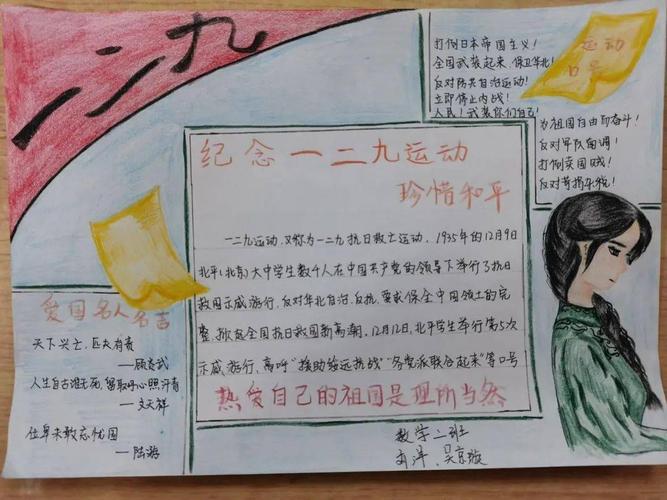 一二九
打倒日本帝国主义！
全国武装起来，保卫华北！
反对防共自治运动！
立即停止内战！
人民！武装你们自己！
运动
口号
为祖国自由而奋斗！
反对军队南调！
打倒卖国贼！
反对苛捐杂税！
纪念一二九运动
珍惜和平
一二九运动，又称为一二九抗日救亡运动，1935年的12月9日
北平(北京)大中学生数千人在中国共产党的领导下举行了抗日
救国示威游行，反对华北自治，反抗，要求保全中国领土的完
整，掀起全国抗日救国新高潮。12月12日，北平学生举行第5次
示威游行，高呼"援助绥远抗战""各党派联合起来"等口号
热爱自己的祖国是理所当然
爱国名人名言
天下兴亡，匹夫有责
—顾炎武
人生自古谁无死，留取丹心照汗青
—文天祥
位卑未敢忘忧国
—陆游
数学二班
吴京璇